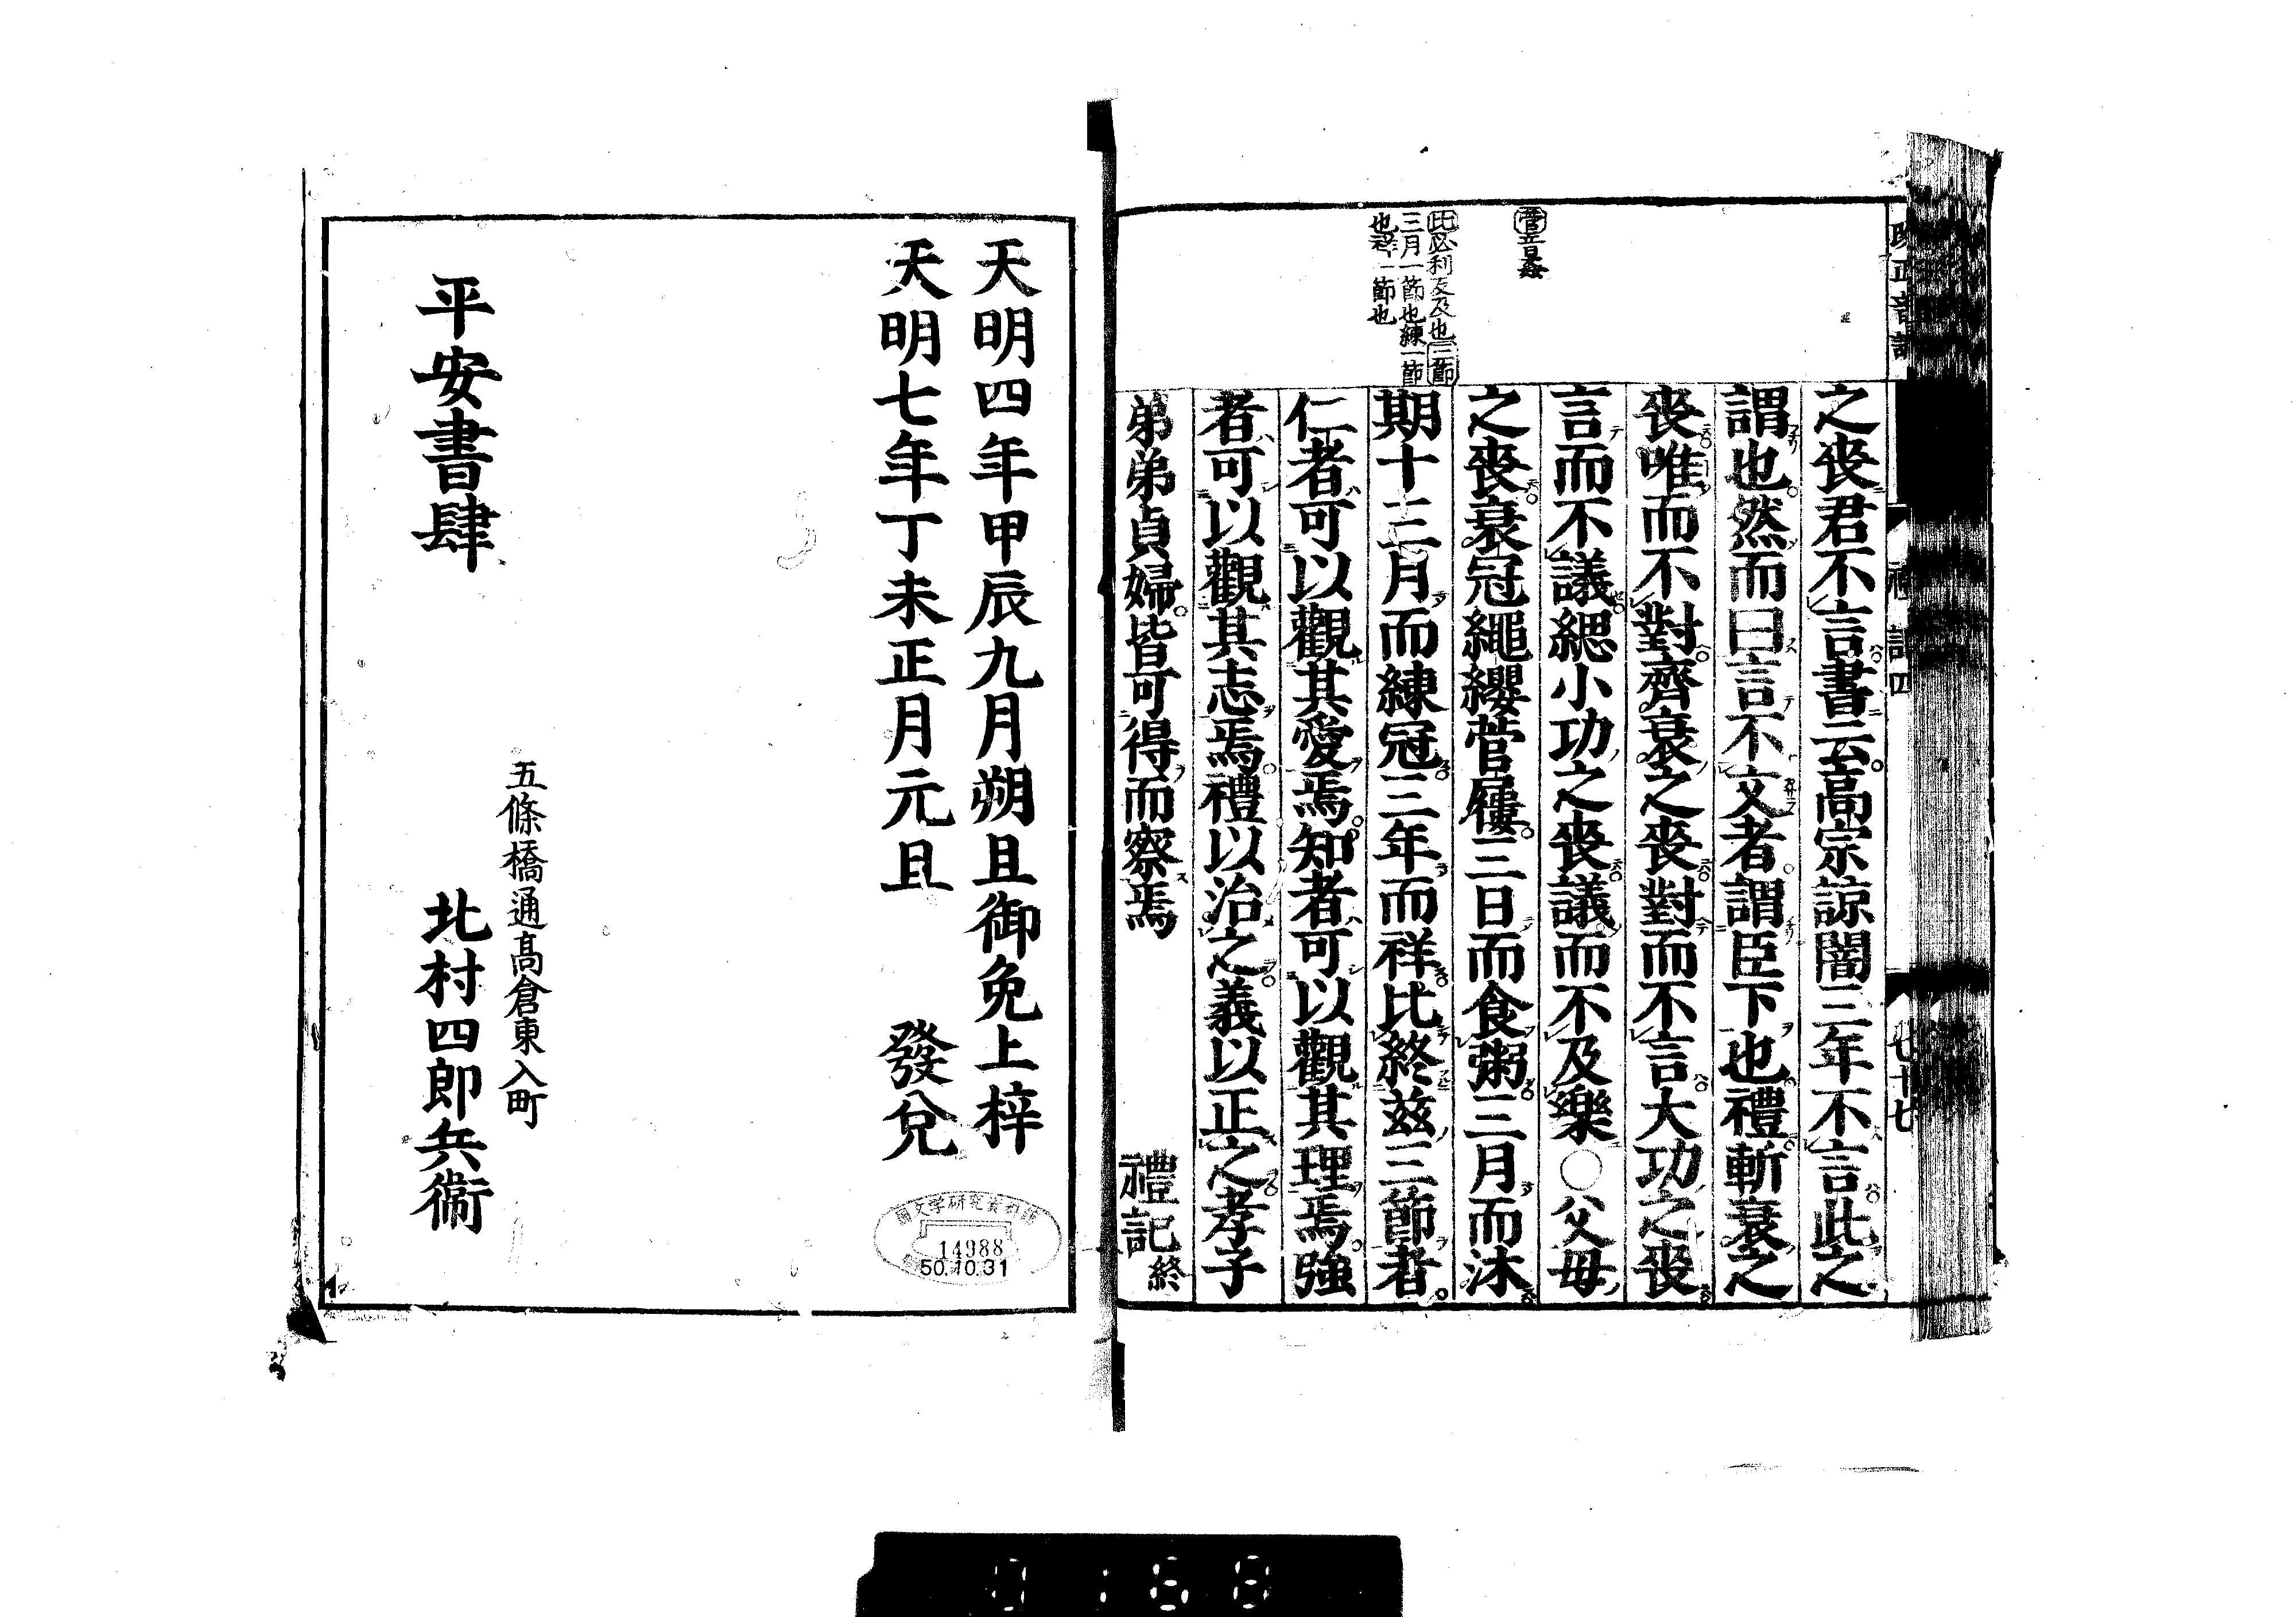 之喪君不言書云高宗諒闇三年不言此之
謂也然而曰言不文者謂臣下也禮斬衰之
喪唯而不對齊衰之喪對而不言大功之喪
言而不議緦小功之喪議而不及樂○父母
之喪衰冠繩纓菅屨三日而食粥三月而沐
期十三月而練冠三年而祥比終玆三節者
仁者可以觀其愛焉知者可以觀其理焉強
者可以觀其志焉禮以治之義以正之孝子
弟弟貞婦皆可得而察焉
禮記終
菅音姦
比必利反及也三節
三月一節也練一節
也祥一節也
禮記四
七十七
天明四年甲辰九月朔旦御免上梓
天明七年丁未正月元旦 發兌
五條橋通髙倉東入町
平安書肆 北村四郎兵衞
14988
50.10.31
0188